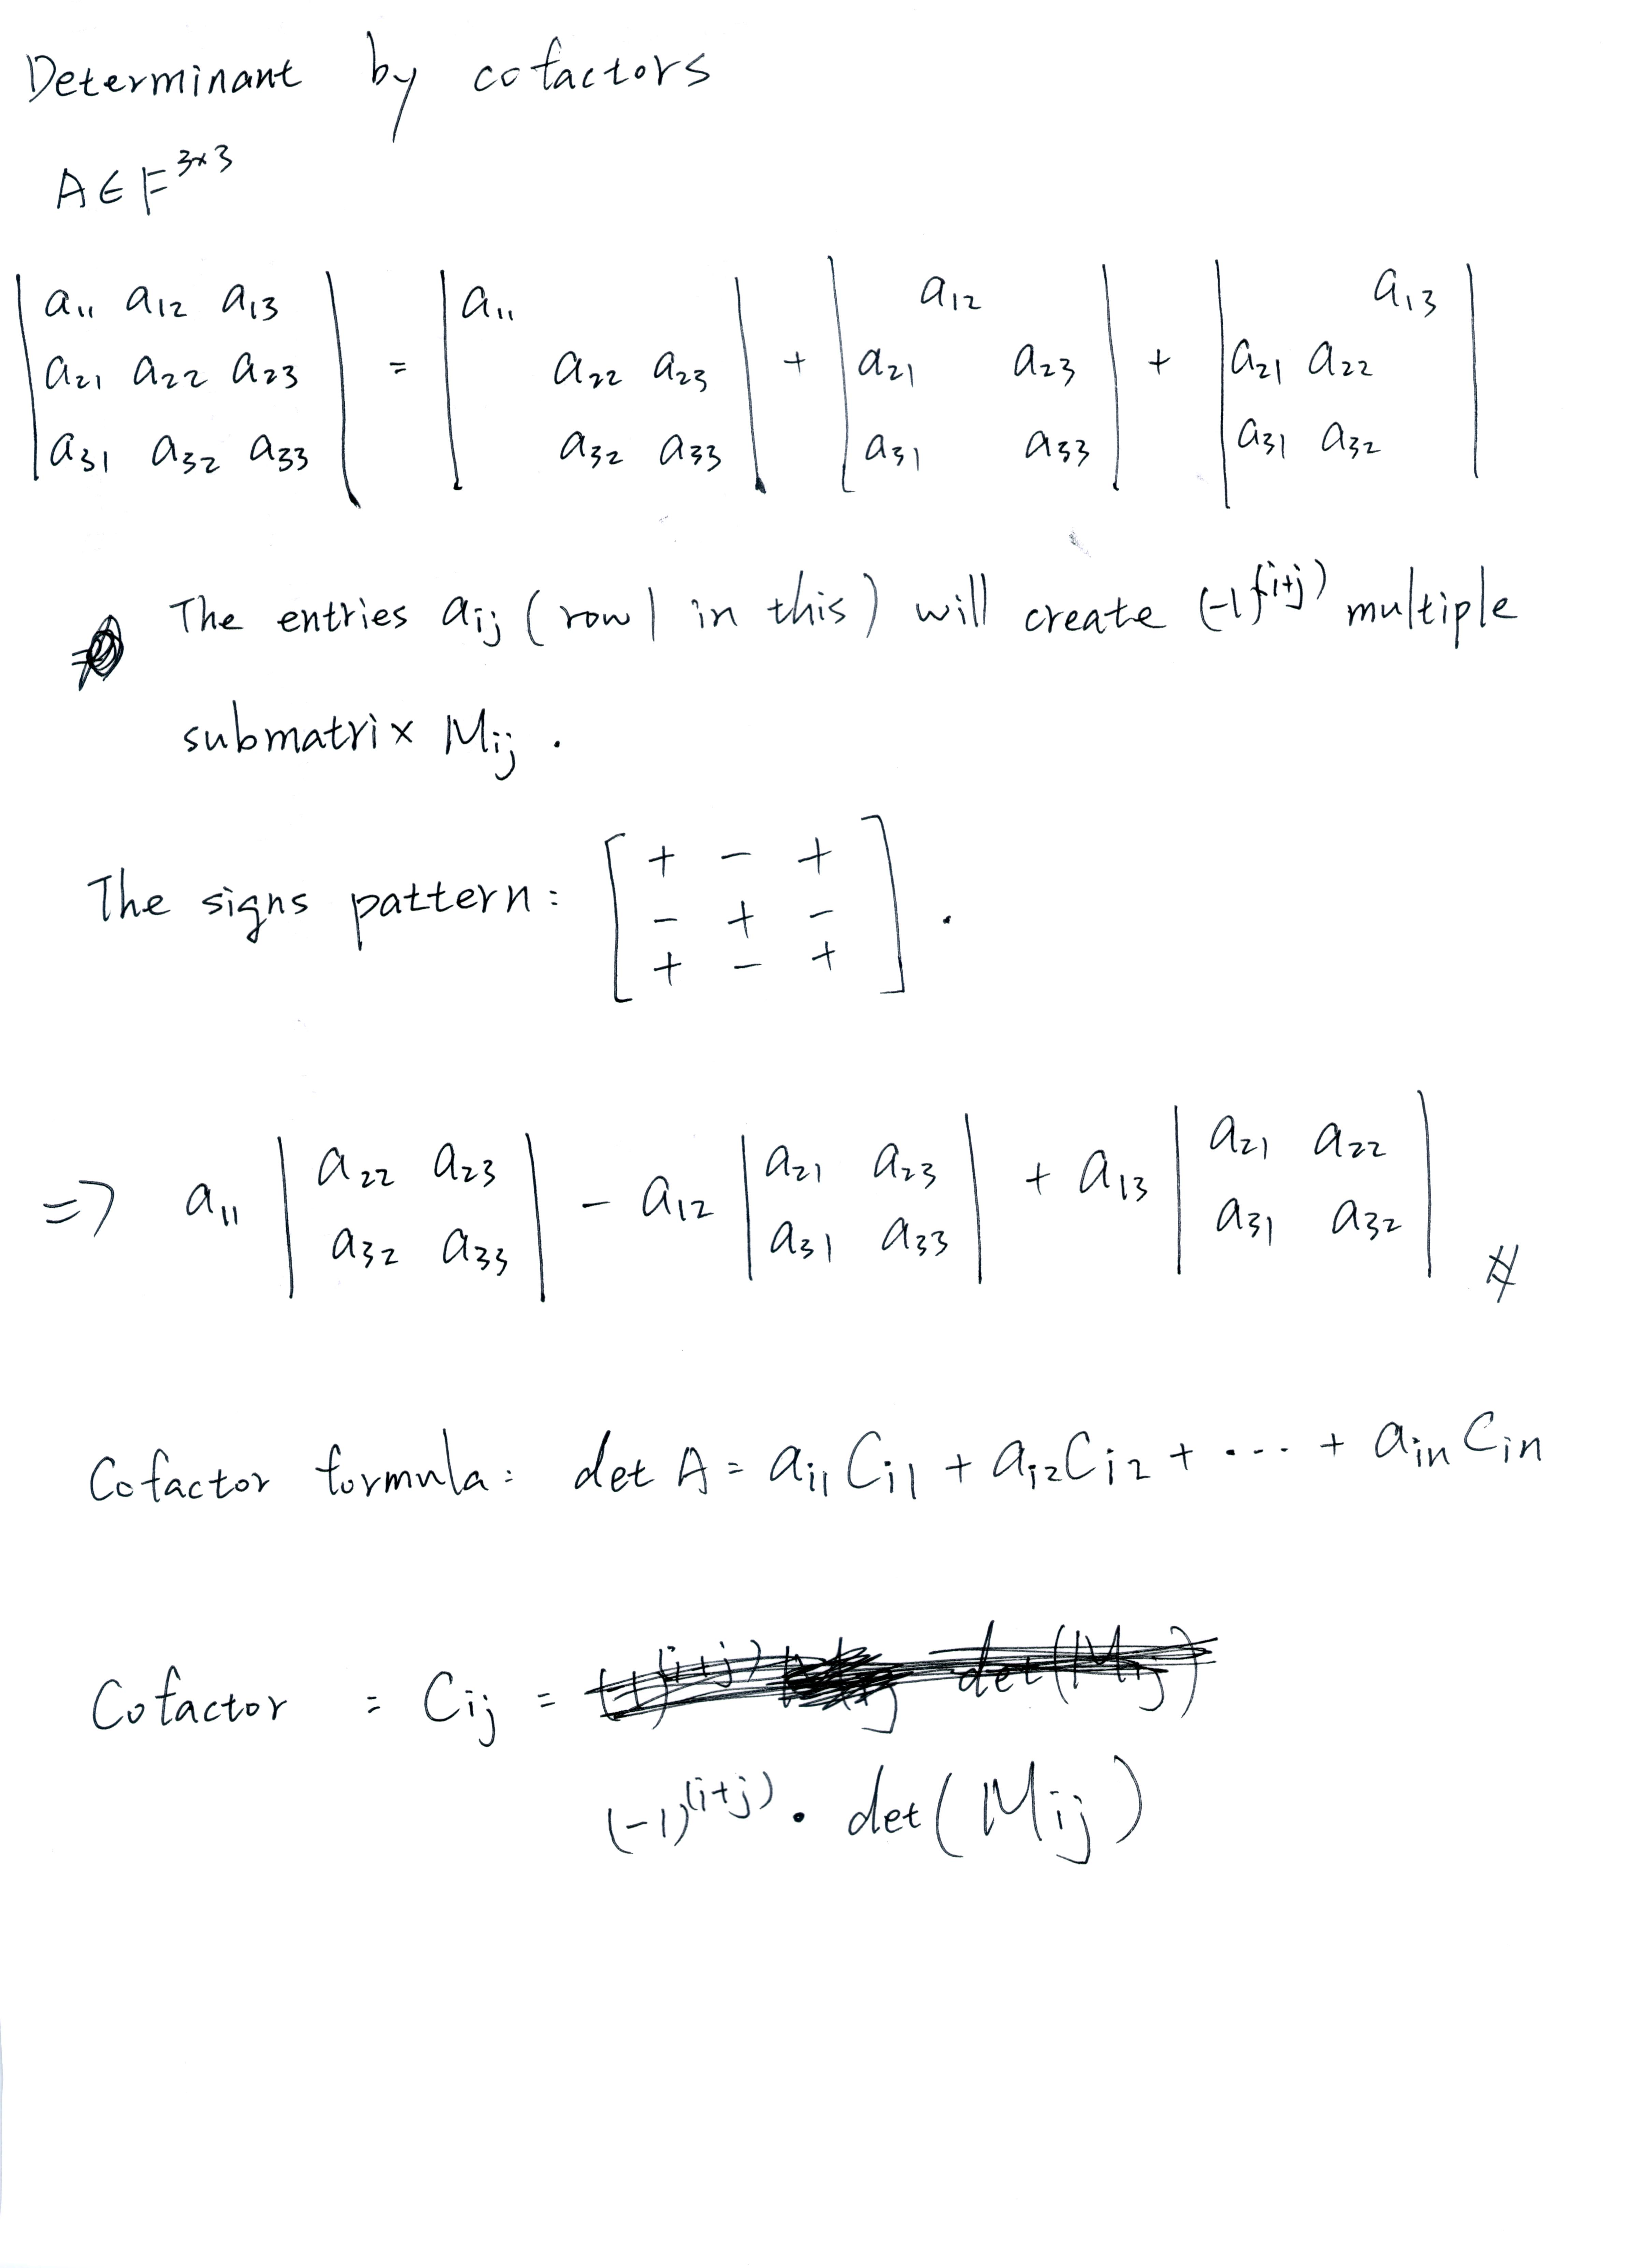 Determinant by cofactors
A ∈ F^{3×3}
| a11 a12 a13 | = | a11 | + | a12 | + | a13 |
| a21 a22 a23 | | a22 a23 | | a21 a23 | | a21 a22 |
| a31 a32 a33 | | a32 a33 | | a31 a33 | | a31 a32 |
The entries aij (row 1 in this) will create (-1)^{(i+j)} multiple
submatrix Mij .
[ + - + ]
The signs pattern: [ - + - ] .
[ + - + ]
⇒ a11 | a22 a23 | - a12 | a21 a23 | + a13 | a21 a22 |
| a32 a33 | | a31 a33 | | a31 a32 | #
Cofactor formula: det A = ai1 Ci1 + ai2 Ci2 + ··· + ain Cin
Cofactor = Cij =
(-1)^{(i+j)} · det(Mij)